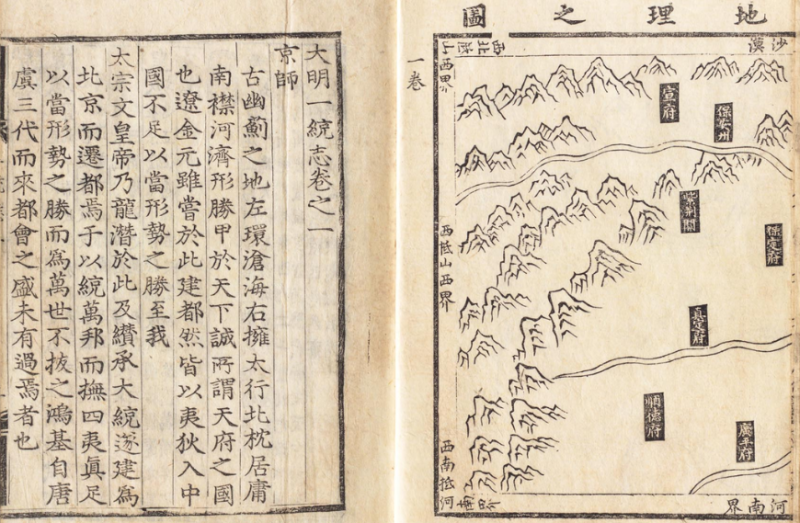 地理之圖
沙漠
西北抵山西界
宣府
保安州
紫荊關
保定府
西抵山西界
眞定府
順德府
廣平府
西南抵河南界
河南界
一卷
大明一統志卷之一
京師
古幽薊之地左環滄海右擁太行北枕居庸
南襟河濟形勝甲於天下誠所謂天府之國
也遼金元雖嘗於此建都然皆以夷狄入中
國不足以當形勢之勝至我
太宗文皇帝乃龍潛於此及纘承大統遂建為
北京而遷都焉于以統萬邦而撫四夷眞足
以當形勢之勝而為萬世不拔之鴻基自唐
虞三代而來都會之盛未有過焉者也